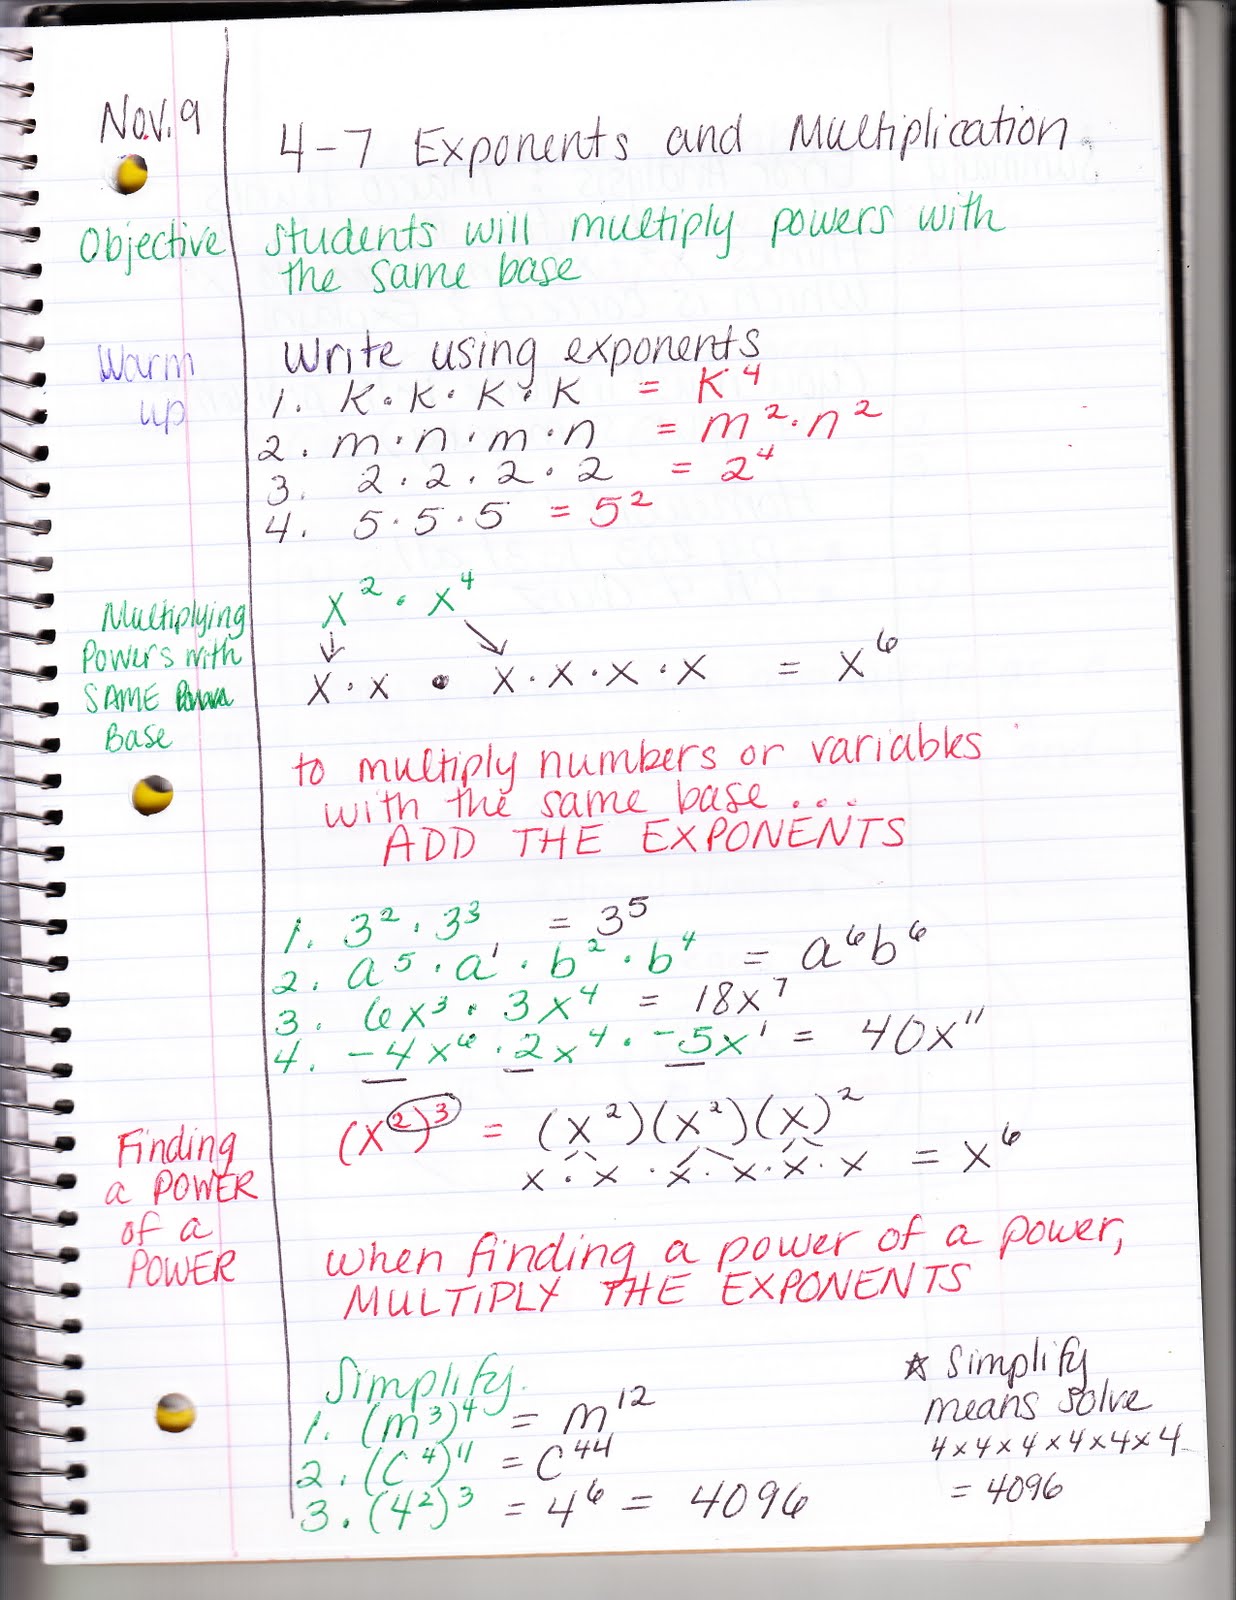 Nov. 9
4-7 Exponents and Multiplication
Objective students will multiply powers with
the same base
Warm up
Write using exponents
1. K · K · K · K = K⁴
2. m · n · m · n = m² · n²
3. 2 · 2 · 2 · 2 = 2⁴
4. 5 · 5 · 5 = 5²
Multiplying
Powers with
SAME
Base
x² · x⁴
x · x · x · x · x · x = x⁶
to multiply numbers or variables
with the same base ...
ADD THE EXPONENTS
1. 3² · 3³ = 3⁵
2. a⁵ · a¹ · b² · b⁴ = a⁶b⁶
3. 6x³ · 3x⁴ = 18x⁷
4. -4x⁶ · 2x⁴ · -5x¹ = 40x¹¹
Finding
a POWER
of a
POWER
(x²)³ = (x²)(x²)(x)²
x · x · x · x · x · x = x⁶
when finding a power of a power,
MULTIPLY THE EXPONENTS
Simplify.
1. (m³)⁴ = m¹²
2. (C⁴)¹¹ = C⁴⁴
3. (4²)³ = 4⁶ = 4096
☆ Simplify
means solve
4 x 4 x 4 x 4 x 4 x 4
= 4096